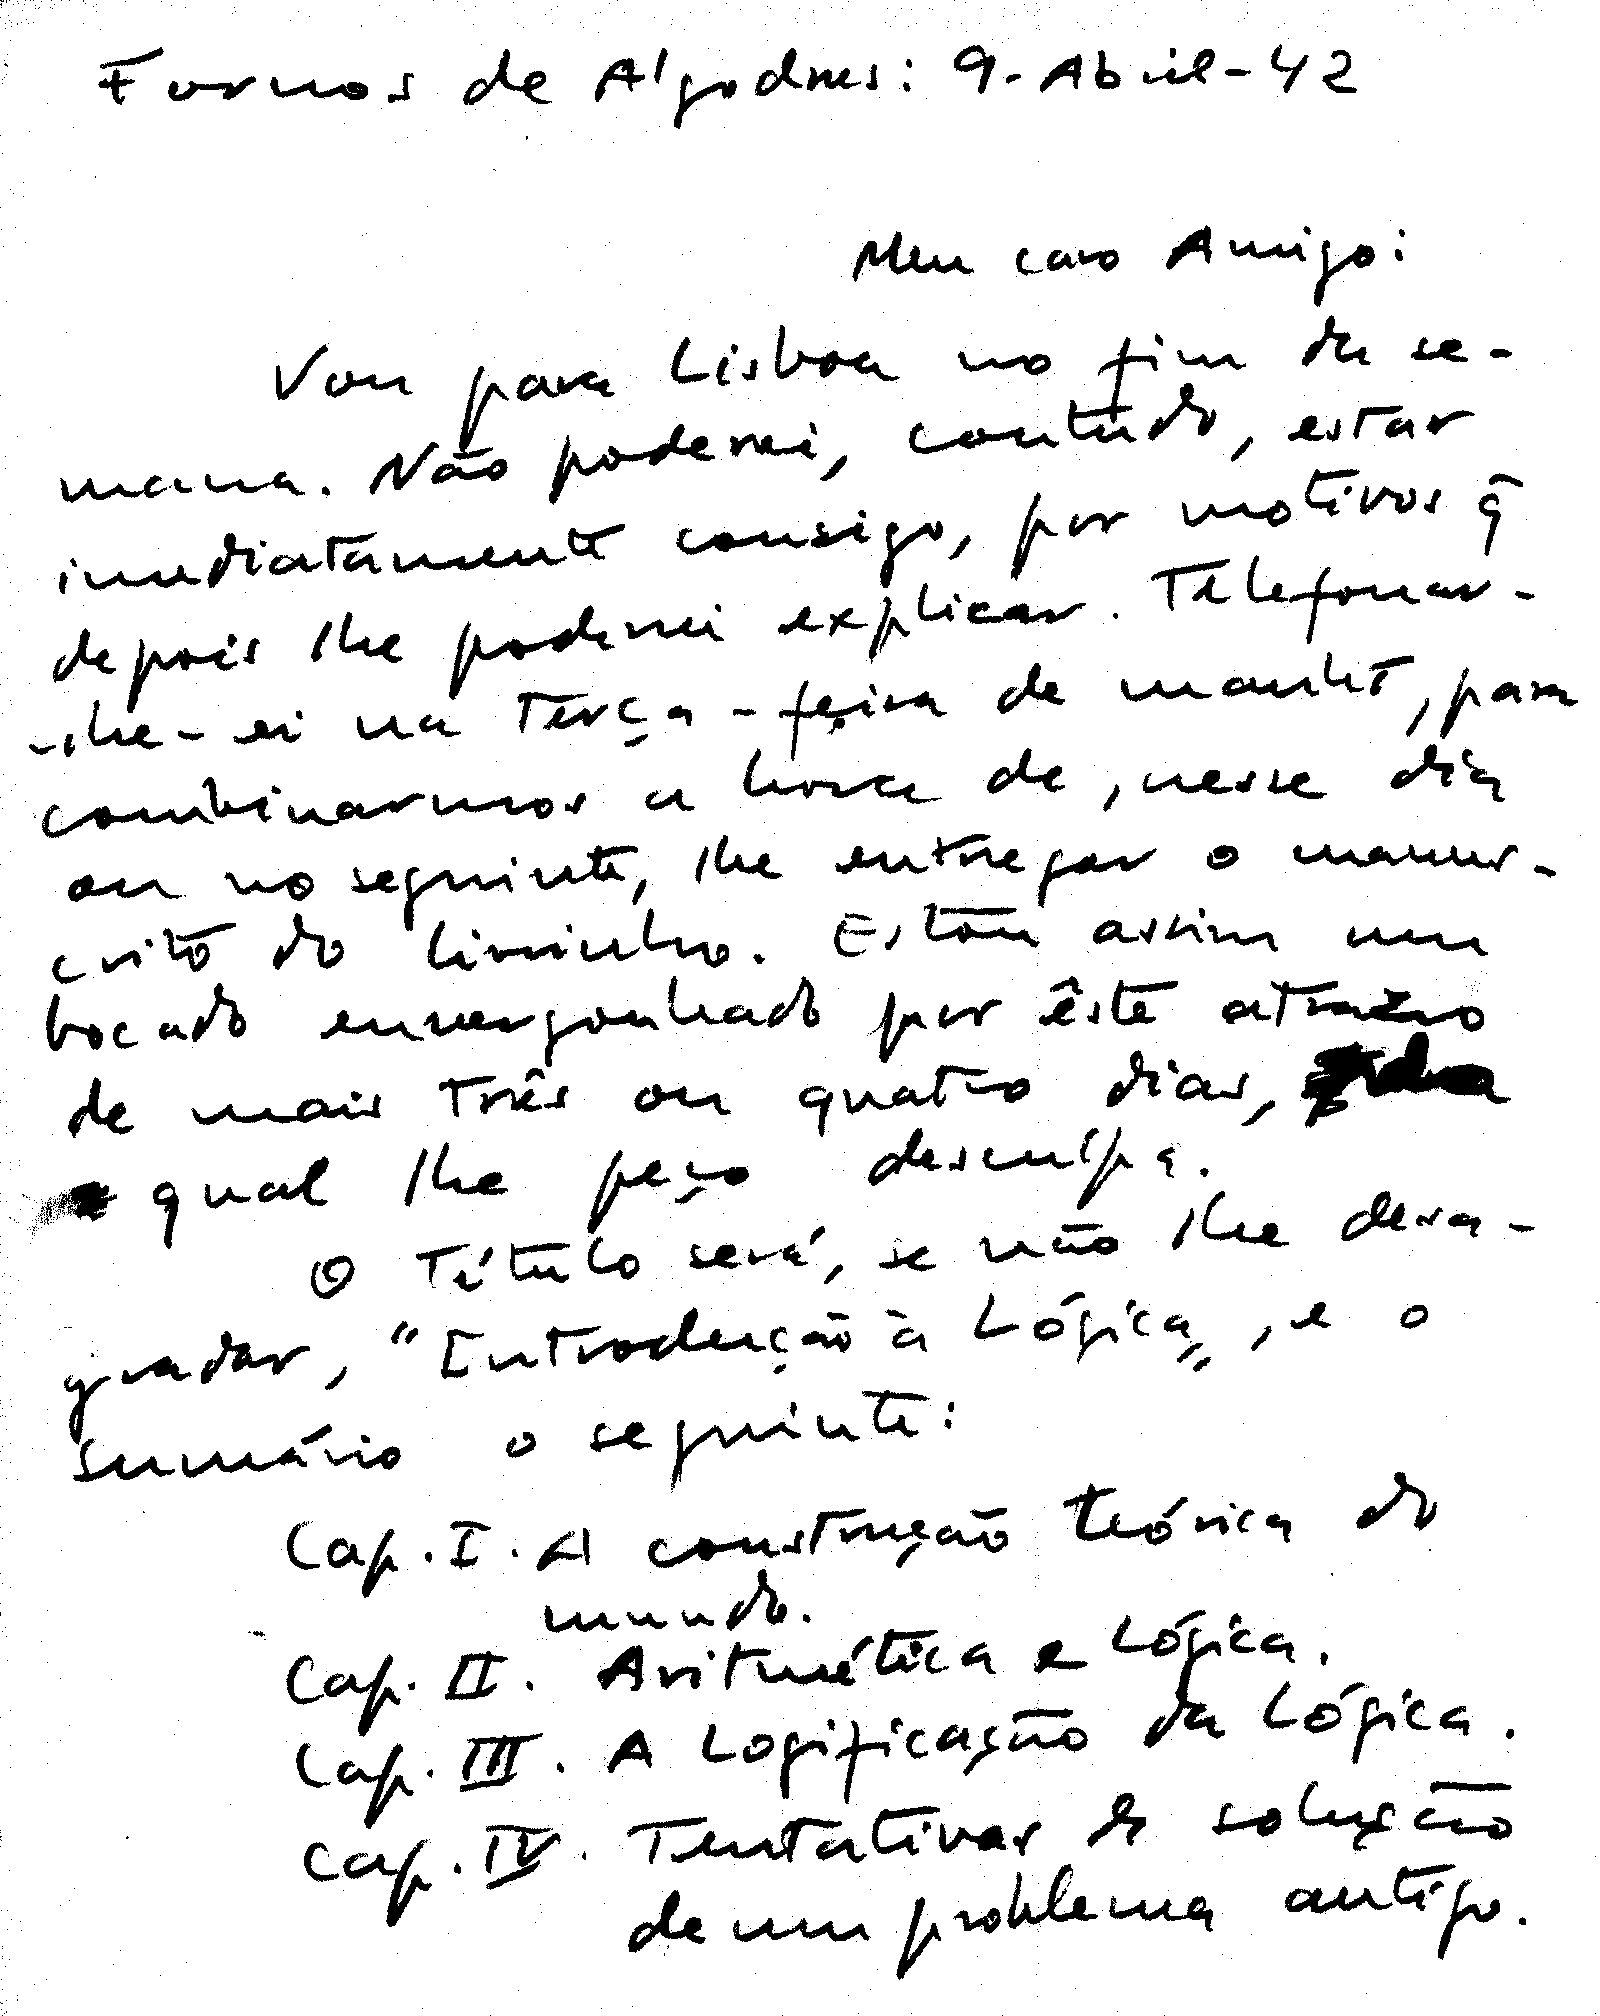 Fornos de Algodres: 9-Abril-42
Meu caro Amigo:
Vou para Lisboa no fim da se-
mana. Não poderei, contudo, estar
imediatamente consigo, por motivos q̃
depois lhe poderei explicar. Telefonar-
-lhe-ei na terça-feira de manhã, para
combinarmos a hora de, nesse dia
ou no seguinte, lhe entregar o manus-
crito do livrinho. Estou assim um
bocado envergonhado por êste atrazo
de mais três ou quatro dias,
qual lhe peço desculpa.
O título será, se não lhe desa-
gradar, "Introdução à Lógica", e o
sumário o seguinte:
Cap. I. A construção teórica do
mundo.
Cap. II. Aritmética e Lógica.
Cap. III. A Logificação da Lógica.
Cap. IV. Tentativas de solução
de um problema antigo.